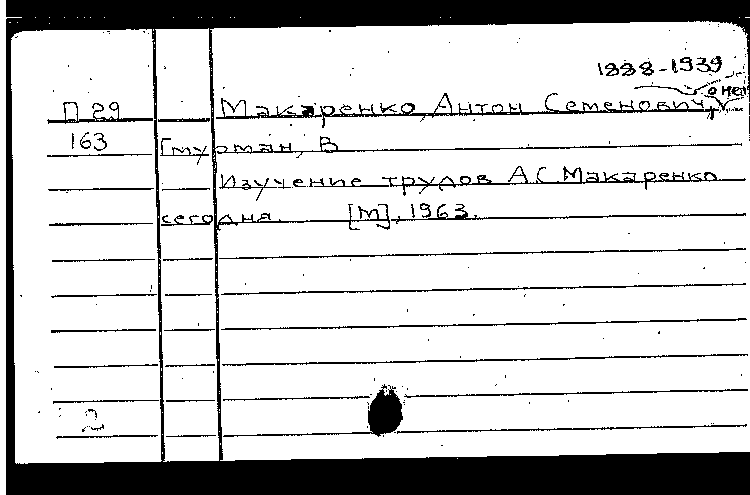 1888-1939
о нем
П 29 Макаренко, Антон Семенович,
163 Гмурман, В
Изучение трудов А.С Макаренко
сегодня. [М], 1963.
2